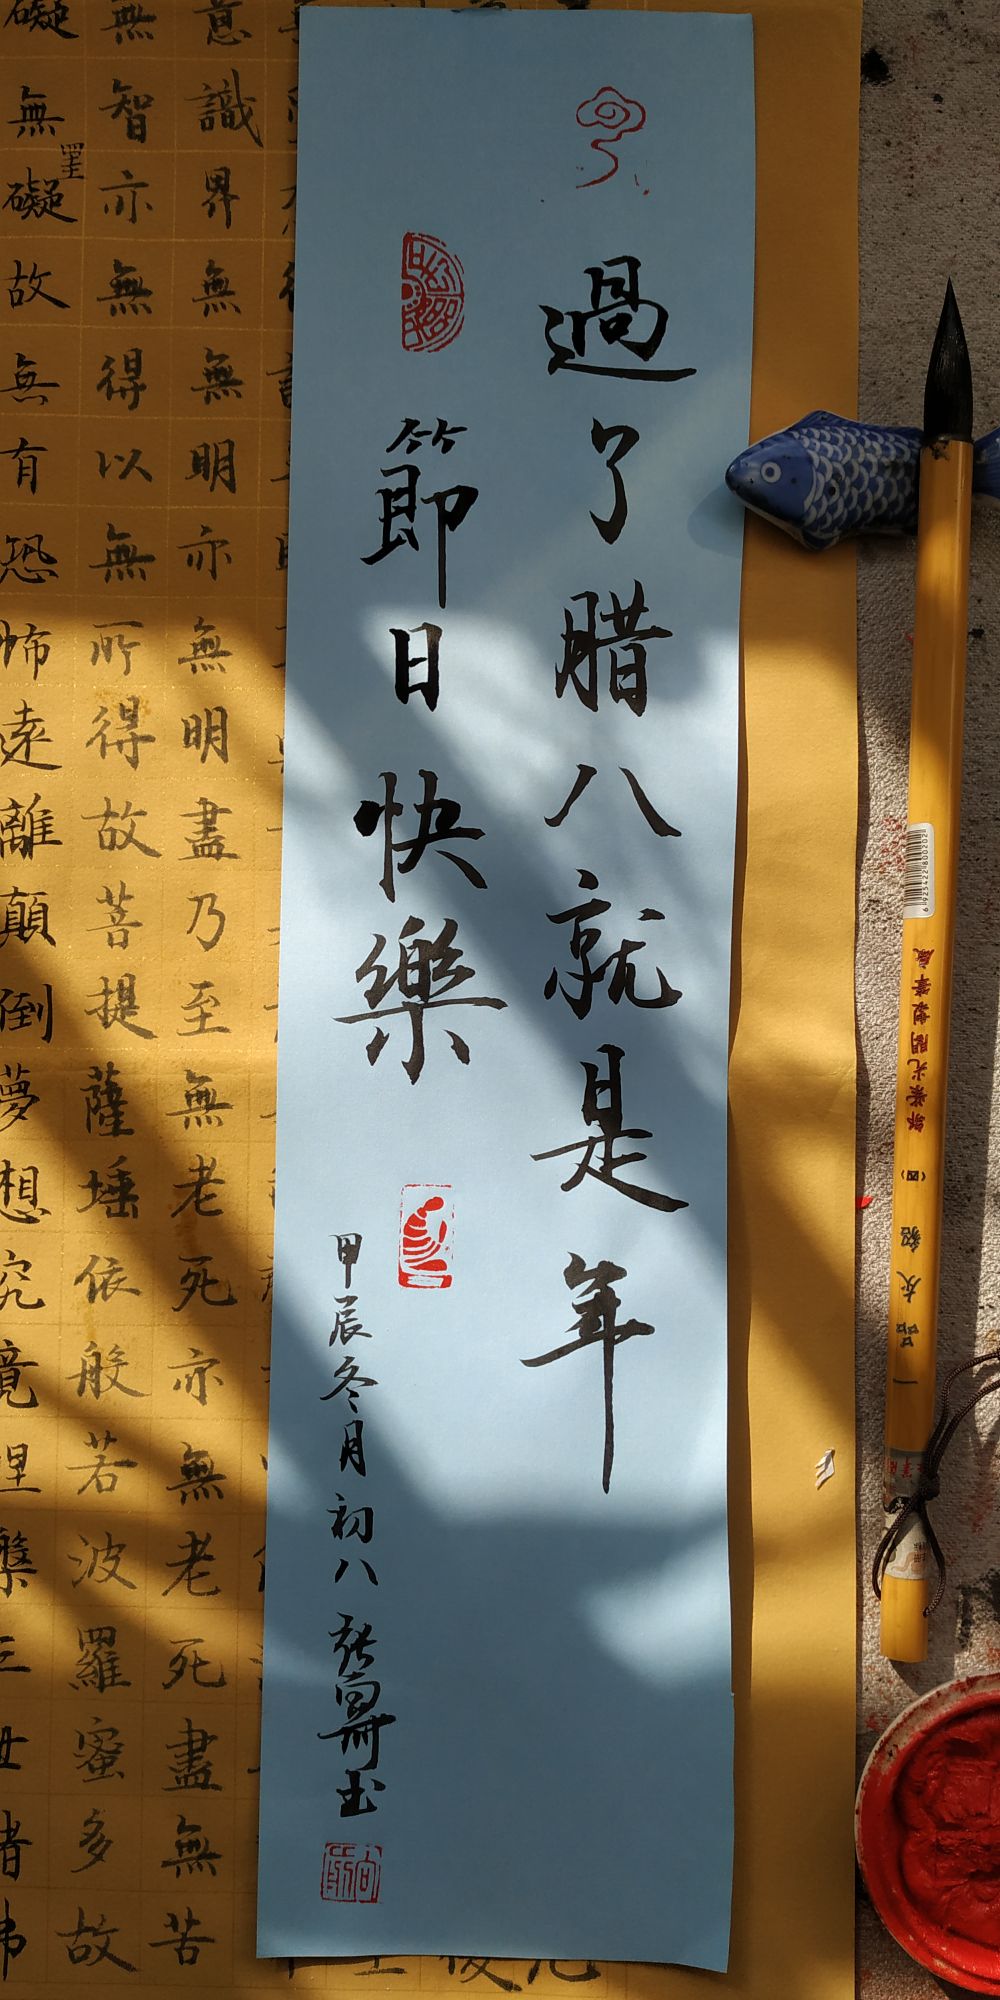 過了腊八就是年
節日快樂
甲辰冬月初八
意識界無無明亦無無明盡乃至無老死亦無老死盡無苦
無智亦無得以無所得故菩提薩埵依般若波羅蜜多故
礙無罣礙故無有恐怖遠離顛倒夢想究竟涅槃三世者
一品友
(四)
6925422800202